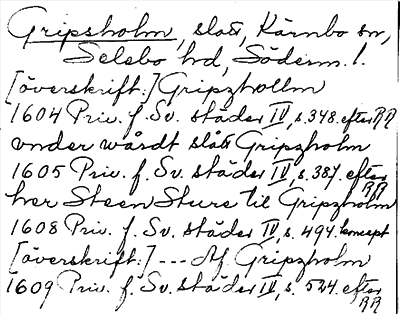 Gripsholm, slott, Kärnbo sn,
Selebo hd, Söderm. l.
[överskrift:] Gripzhollm
1604 Priv. f. Sv. städer IV, s. 348. efter RR
vnder wårdt slått Gripzholm
1605 Priv. f. Sv. städer IV, s. 387. efter RR
her Steen Sture til Gripzholm
1608 Priv. f. Sv. städer IV, s. 494. koncept
[överskrift:] --- Af Gripzholm
1609 Priv. f. Sv. städer IV, s. 524. efter RR